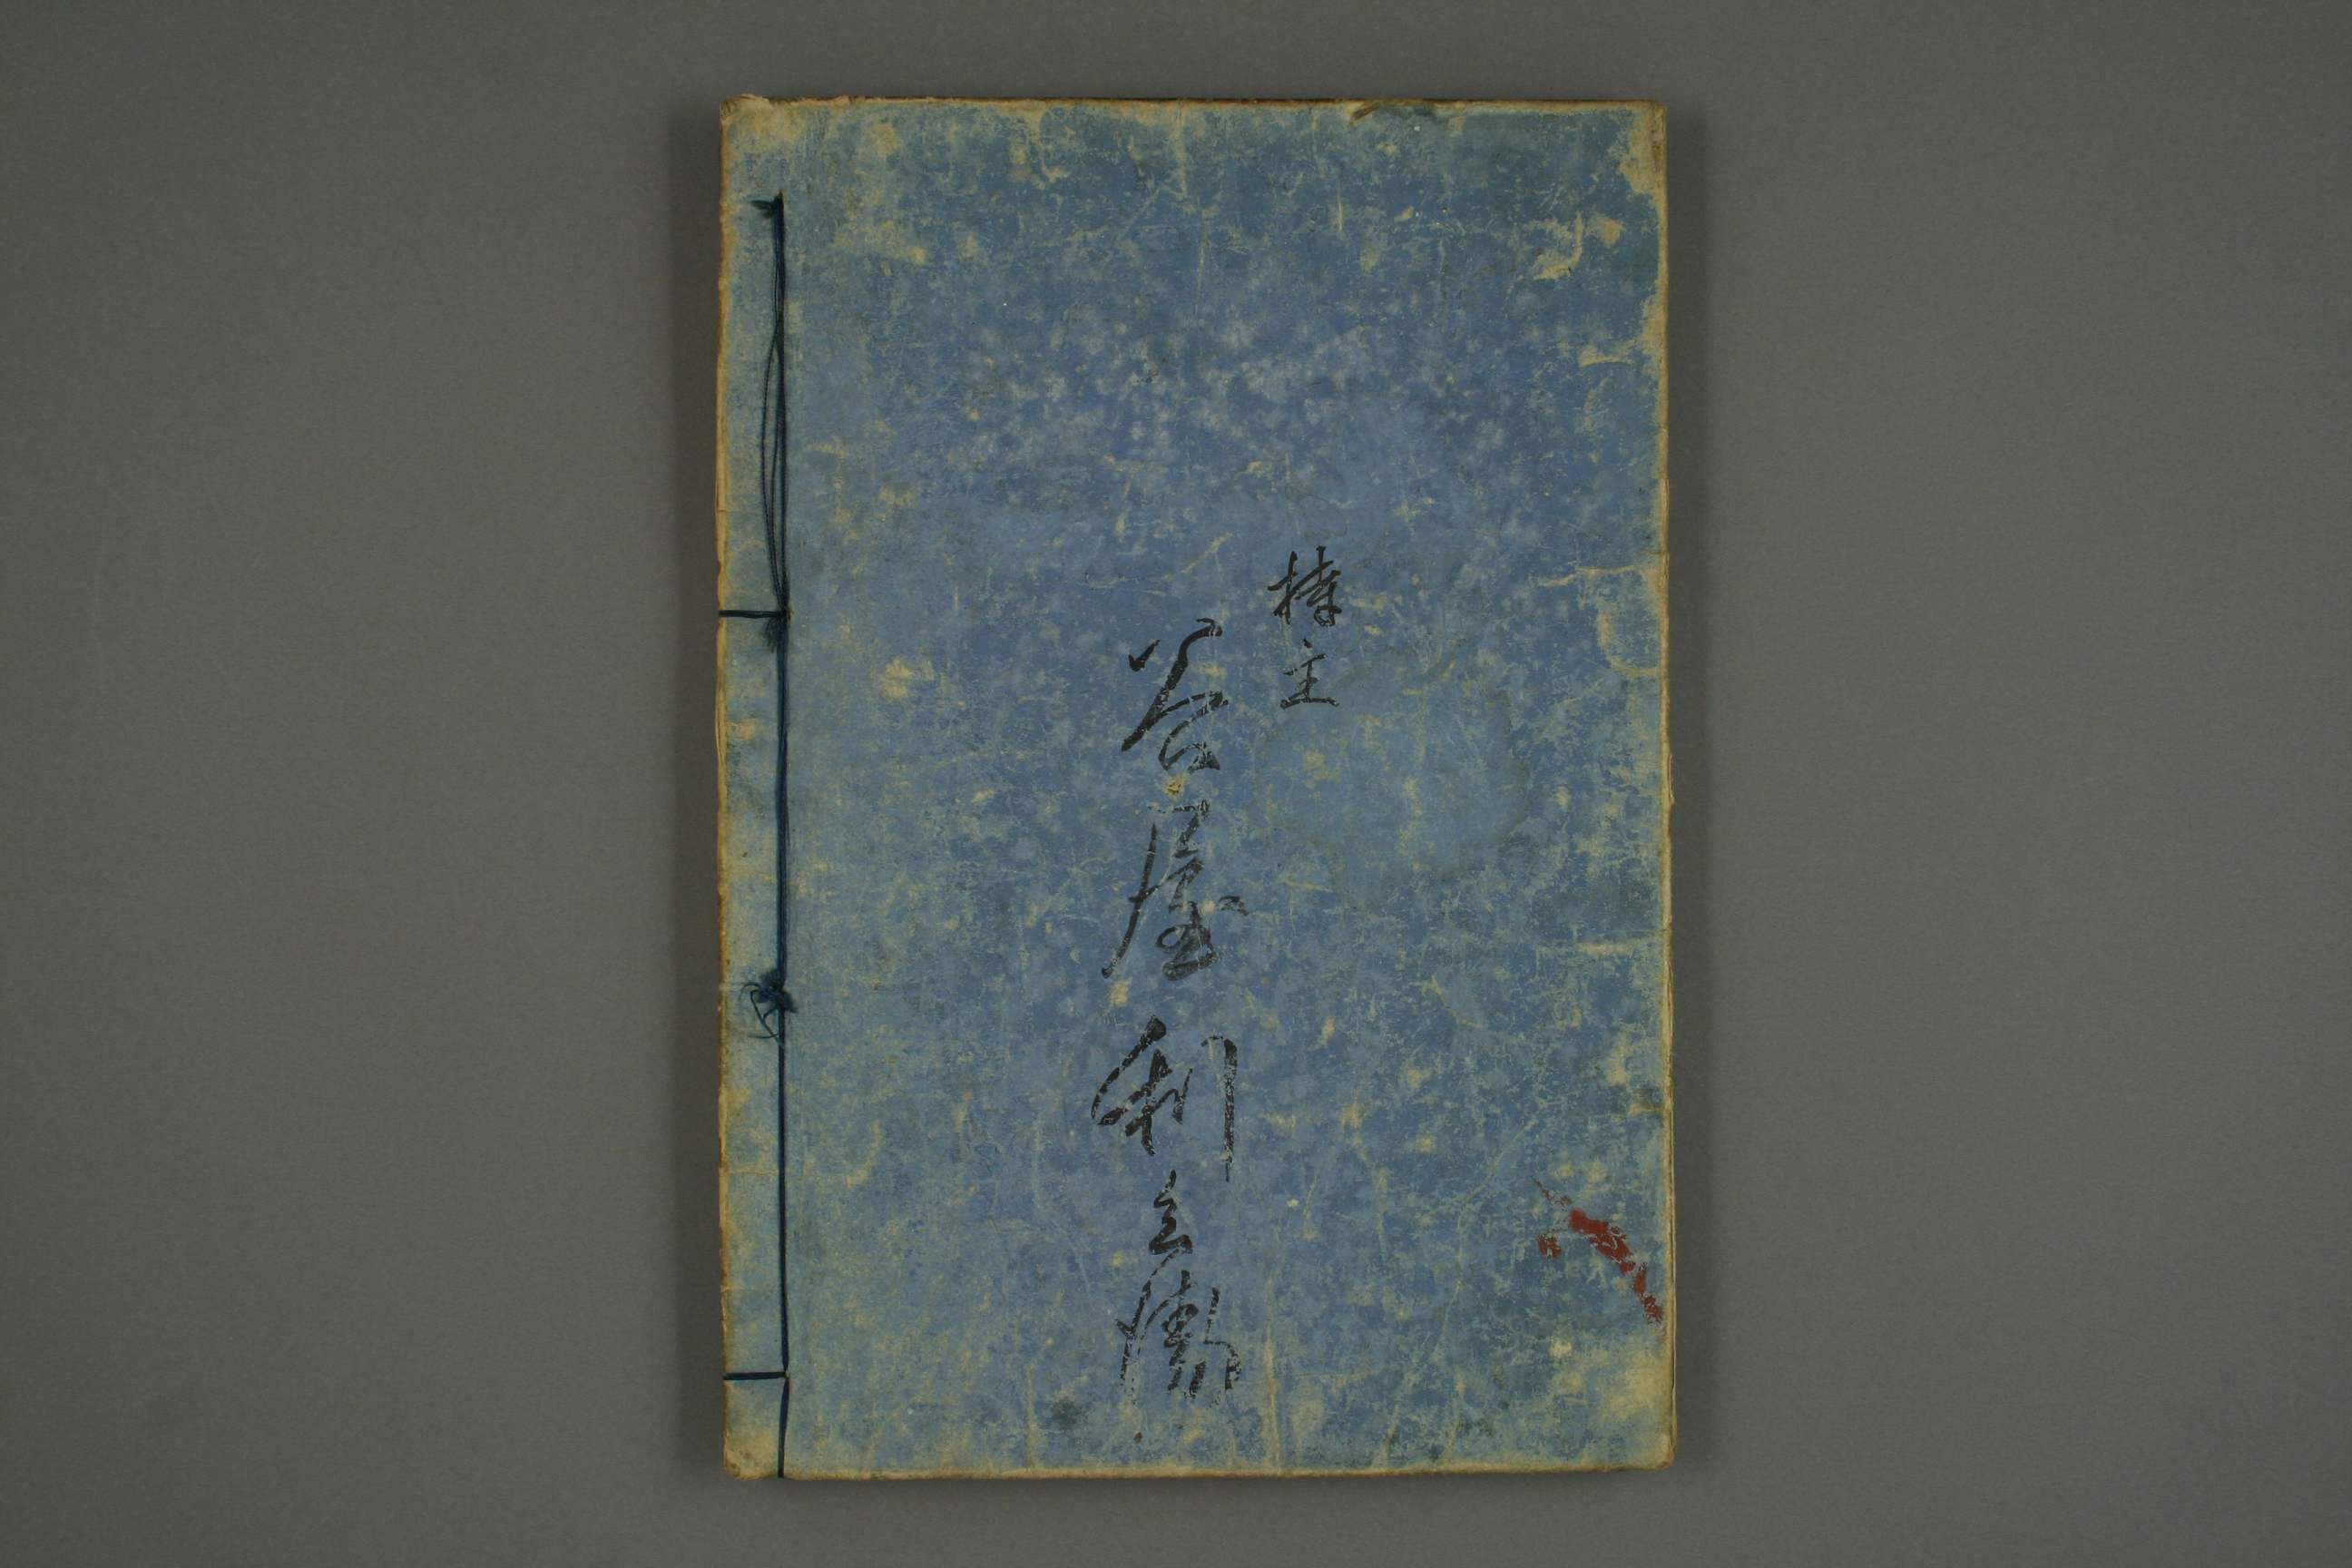 持主
谷屋利兵衛